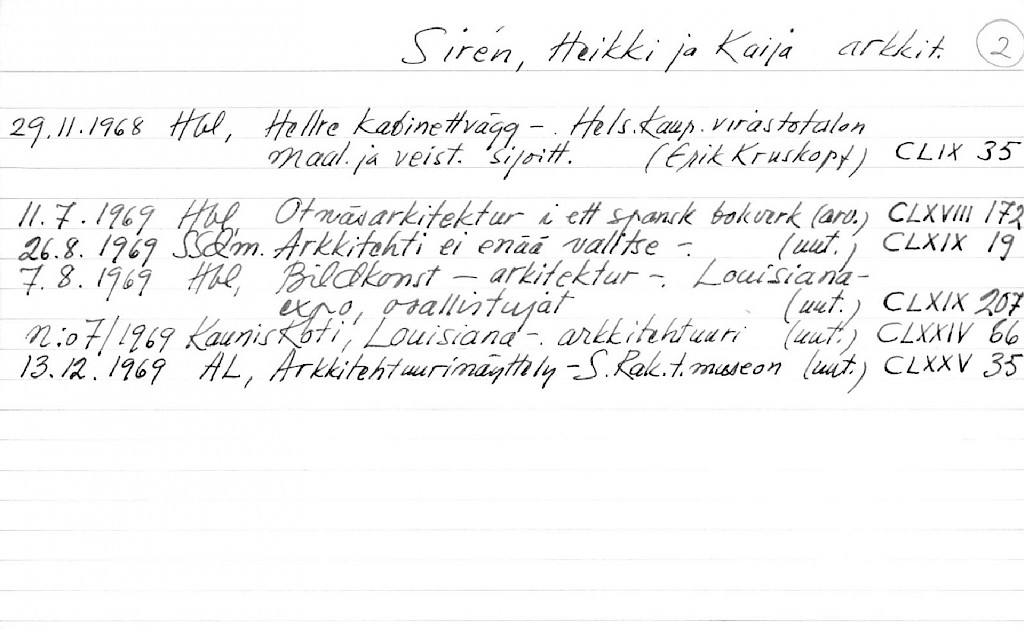 Sirén, Heikki ja Kaija arkkit. 2
29.11.1968 Hbl, Hellre kabinettvägg -. Hels.kaup.virastotalon
maal. ja veist. sijoitt. (Erik Kruskopf) CLIX 35
11.7.1969 Hbl, Otnäsarkitektur i ett spansk bokverk (arv.) CLXVIII 172
26.8.1969 SSd'm. Arkkitehti ei enää valitse -. (uut.) CLXIX 19
7.8.1969 Hbl, Bildkonst - arkitektur -. Louisiana-
expo, osallistujat (uut.) CLXIX 207
n:o 7/1969 Kaunis Koti, Louisiana -. arkkitehtuuri (uut.) CLXXIV 66
13.12.1969 AL, Arkkitehtuurinäyttely - S.Rak.t.museon (uut.) CLXXV 35